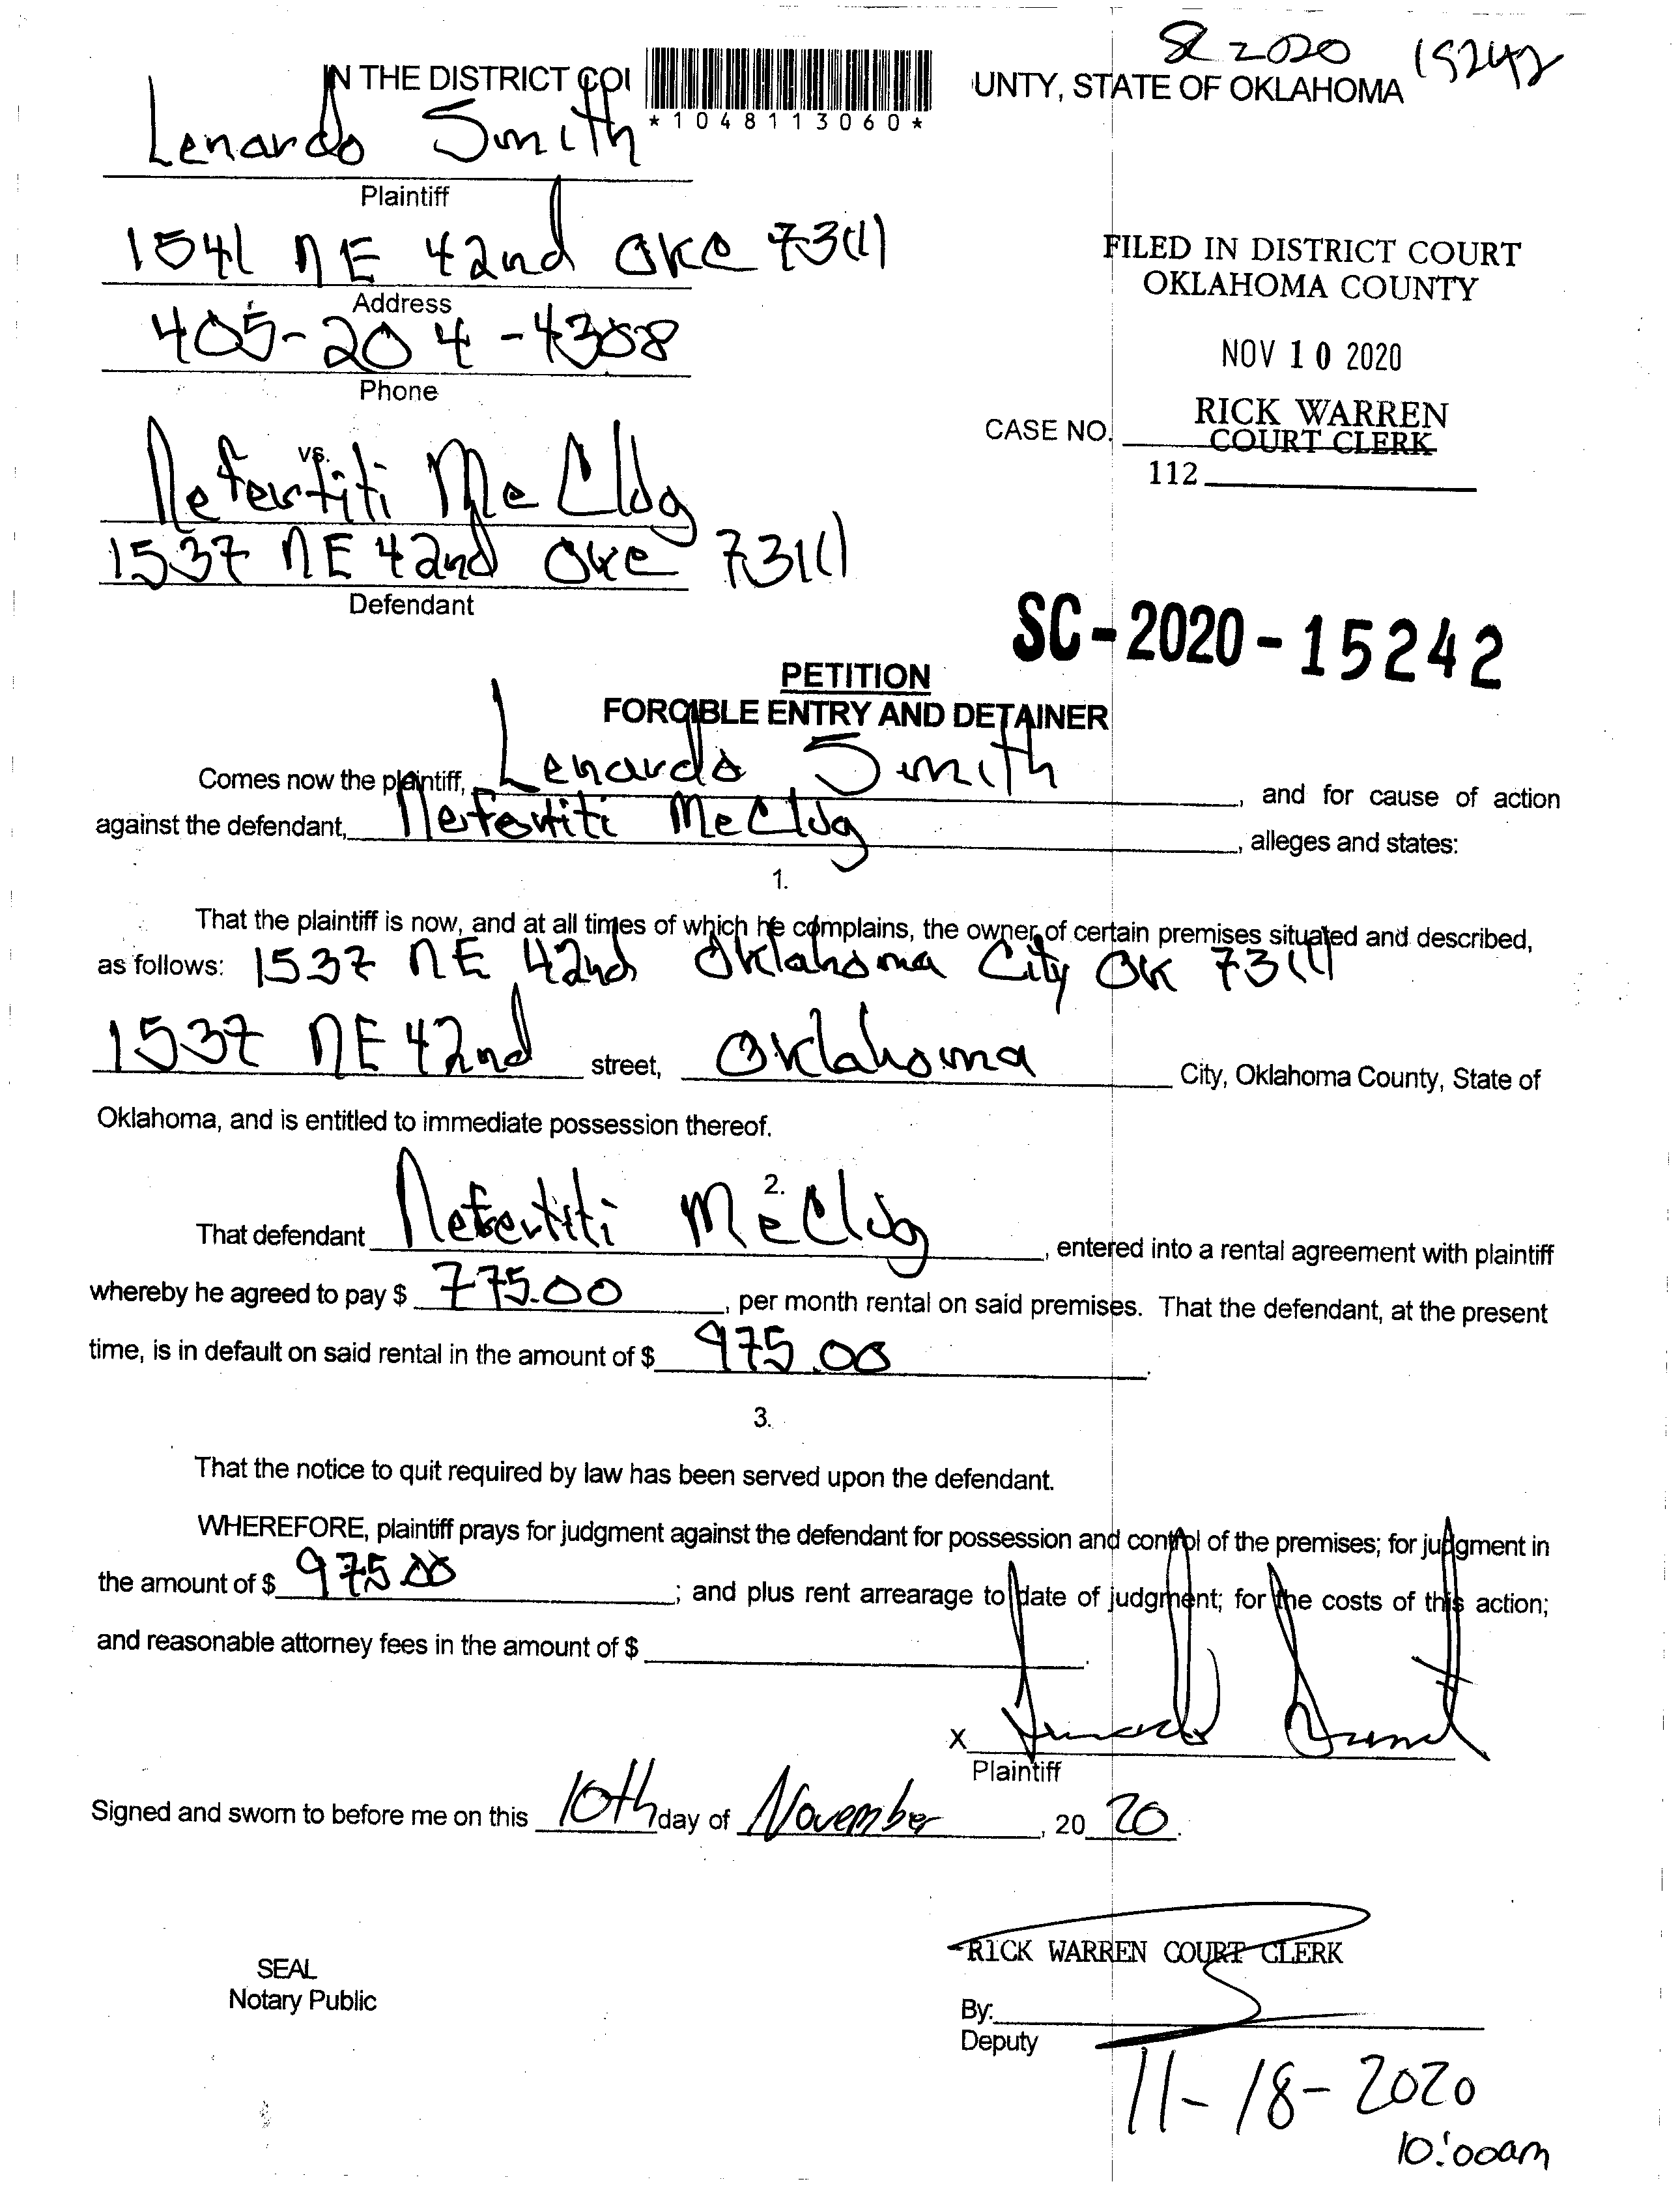 SC 2020 15242
IN THE DISTRICT COU UNTY, STATE OF OKLAHOMA
*1048113060*
Lenardo Smith
Plaintiff
1541 NE 42nd OKC 73111
Address
405-204-4308
Phone
FILED IN DISTRICT COURT
OKLAHOMA COUNTY
NOV 10 2020
RICK WARREN
COURT CLERK
CASE NO.
112
vs.
Nefertiti McCldg
1537 NE 42nd OKC 73111
Defendant
SC-2020-15242
PETITION
FORCIBLE ENTRY AND DETAINER
Comes now the plaintiff, Lenardo Smith, and for cause of action
against the defendant, Nefertiti McCldg, alleges and states:
1.
That the plaintiff is now, and at all times of which he complains, the owner of certain premises situated and described,
as follows: 1537 NE 42nd Oklahoma City OK 73111
1537 NE 42nd street, Oklahoma City, Oklahoma County, State of
Oklahoma, and is entitled to immediate possession thereof.
2.
That defendant Nefertiti McCldg, entered into a rental agreement with plaintiff
whereby he agreed to pay $ 775.00, per month rental on said premises. That the defendant, at the present
time, is in default on said rental in the amount of $ 975.00.
3.
That the notice to quit required by law has been served upon the defendant.
WHEREFORE, plaintiff prays for judgment against the defendant for possession and control of the premises; for judgment in
the amount of $ 975.00; and plus rent arrearage to date of judgment; for the costs of this action;
and reasonable attorney fees in the amount of $
X
Plaintiff
Signed and sworn to before me on this 10th day of November, 20 20.
RICK WARREN COURT CLERK
SEAL
Notary Public
By:
Deputy
11-18-2020
10:00am